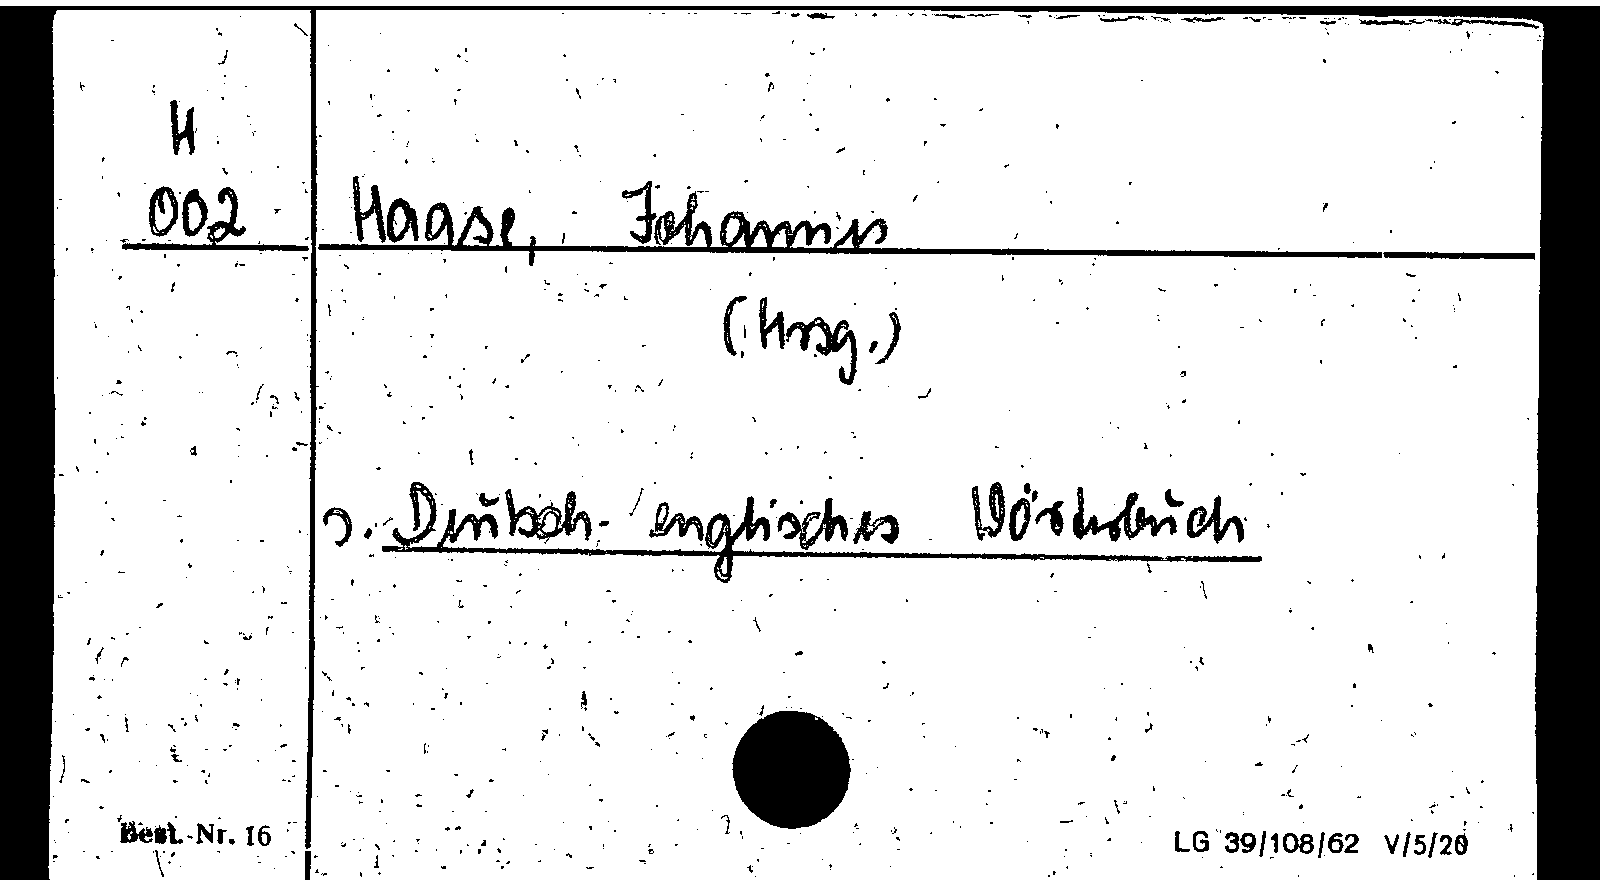 H
002
Haase, Johannes
(Hrsg.)
s. Deutsch-englisches Wörterbuch
Best.-Nr. 16
LG 39/108/62 V/5/20